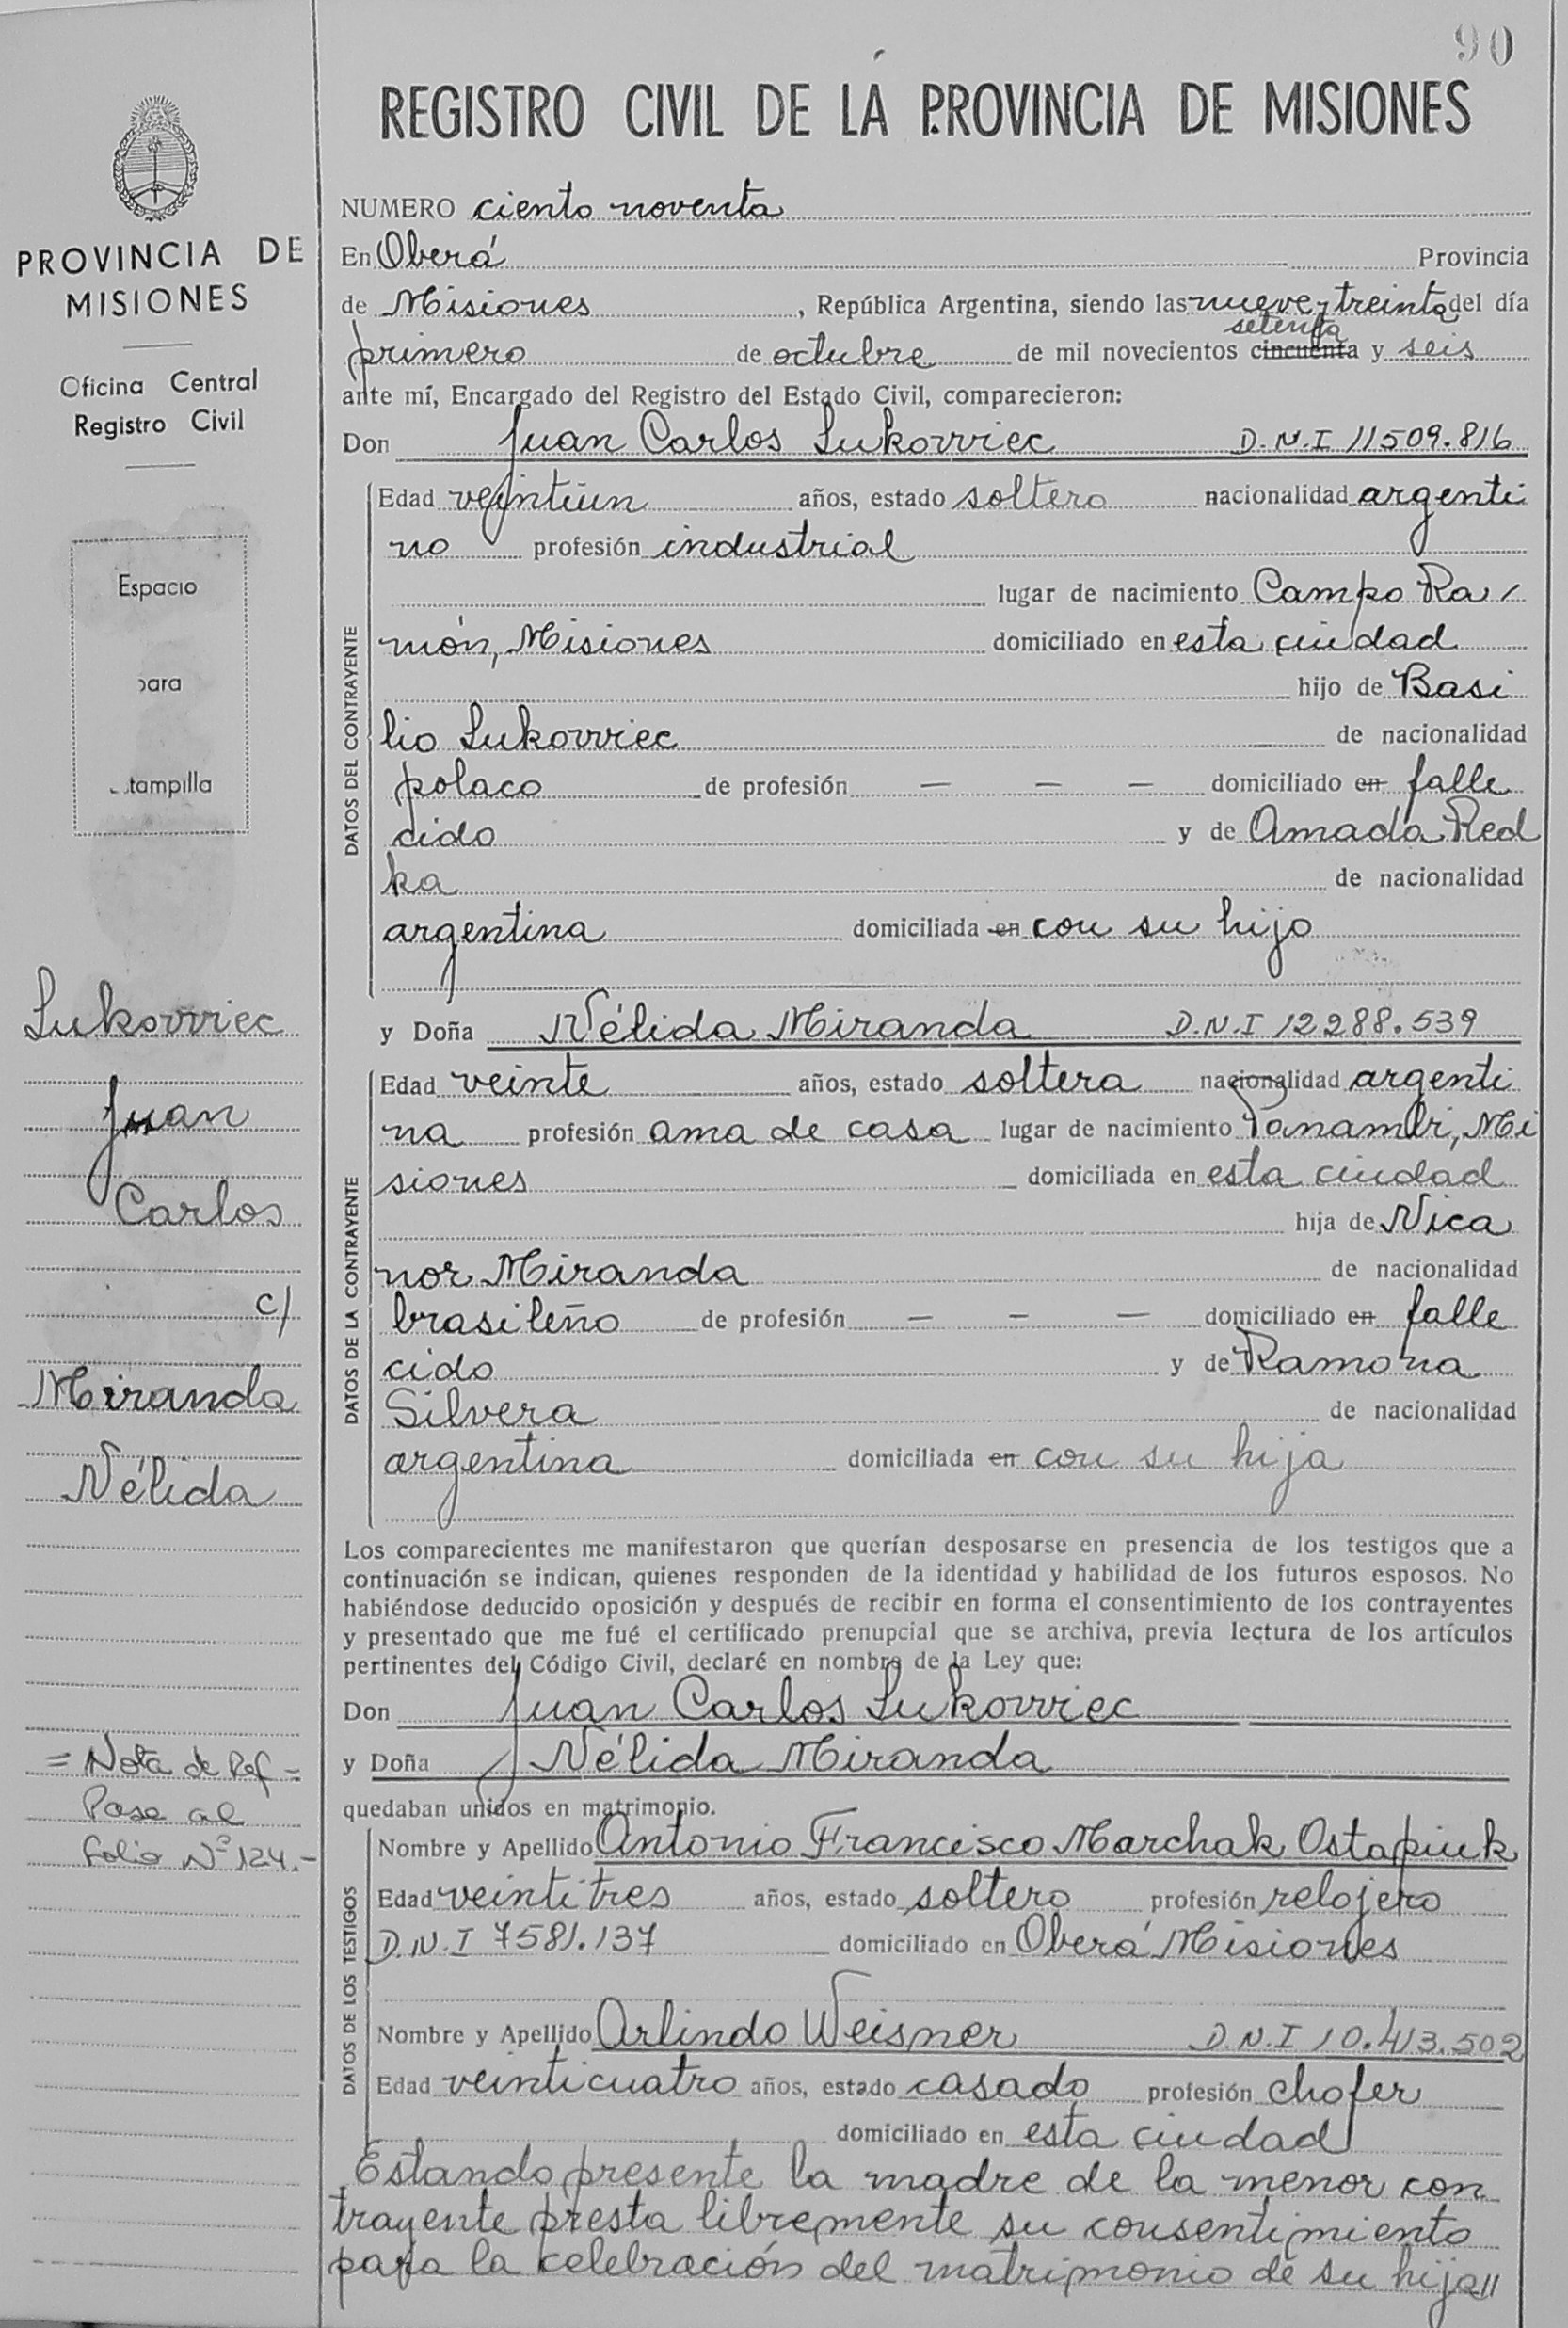 90
REGISTRO CIVIL DE LA PROVINCIA DE MISIONES
PROVINCIA DE
MISIONES
Oficina Central
Registro Civil
Espacio
para
tampilla
Lukowiec
Juan
Carlos
c/
Miranda
Nélida
= Nota de Ref =
Pasa al
folio Nº 124.-
NUMERO ciento noventa
En Oberá Provincia
de Misiones, República Argentina, siendo las nueve y treinta del día
setenta
primero de octubre de mil novecientos cincuenta y seis
ante mí, Encargado del Registro del Estado Civil, comparecieron:
Don Juan Carlos Lukowiec D.N.I 11509.816
DATOS DEL CONTRAYENTE
Edad veintiún años, estado soltero nacionalidad argenti
no profesión industrial
lugar de nacimiento Campo Ra/
món, Misiones domiciliado en esta ciudad
hijo de Basi
lio Lukowiec de nacionalidad
polaco de profesión — — — domiciliado en falle
cido y de Amada Red
ka de nacionalidad
argentina domiciliada en con su hijo
y Doña Nélida Miranda D.N.I 12288.539
DATOS DE LA CONTRAYENTE
Edad veinte años, estado soltera nacionalidad argenti
na profesión ama de casa lugar de nacimiento Panambí, Mi
siones domiciliada en esta ciudad
hija de Nica
nor Miranda de nacionalidad
brasileño de profesión — — — domiciliado en falle
cido y de Ramona
Silvera de nacionalidad
argentina domiciliada en con su hija
Los comparecientes me manifestaron que querían desposarse en presencia de los testigos que a
continuación se indican, quienes responden de la identidad y habilidad de los futuros esposos. No
habiéndose deducido oposición y después de recibir en forma el consentimiento de los contrayentes
y presentado que me fué el certificado prenupcial que se archiva, previa lectura de los artículos
pertinentes del Código Civil, declaré en nombre de la Ley que:
Don Juan Carlos Lukowiec
y Doña Nélida Miranda
quedaban unidos en matrimonio.
DATOS DE LOS TESTIGOS
Nombre y Apellido Antonio Francisco Marchak Ostapiuk
Edad veintitres años, estado soltero profesión relojero
D.N.I 7581.137 domiciliado en Oberá Misiones
Nombre y Apellido Arlindo Weisner D.N.I 10.413.502
Edad veinticuatro años, estado casado profesión chofer
domiciliado en esta ciudad
Estando presente la madre de la menor con
trayente presta libremente su consentimiento
para la celebración del matrimonio de su hija//